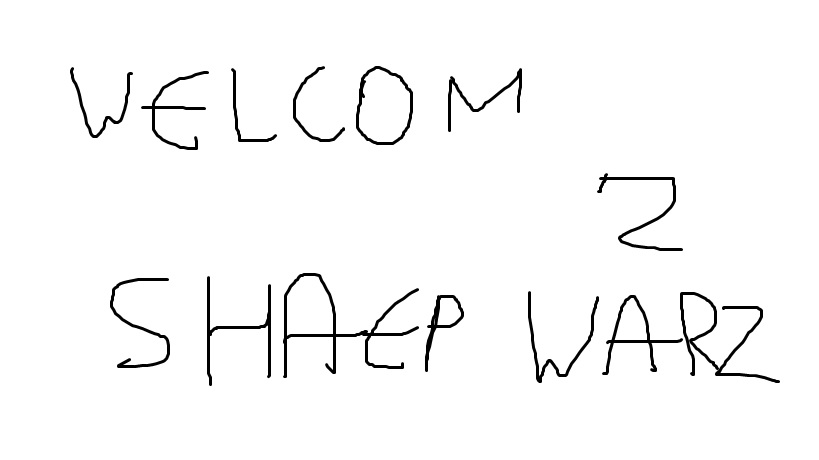 WELCOM
2
SHAEP WARZ